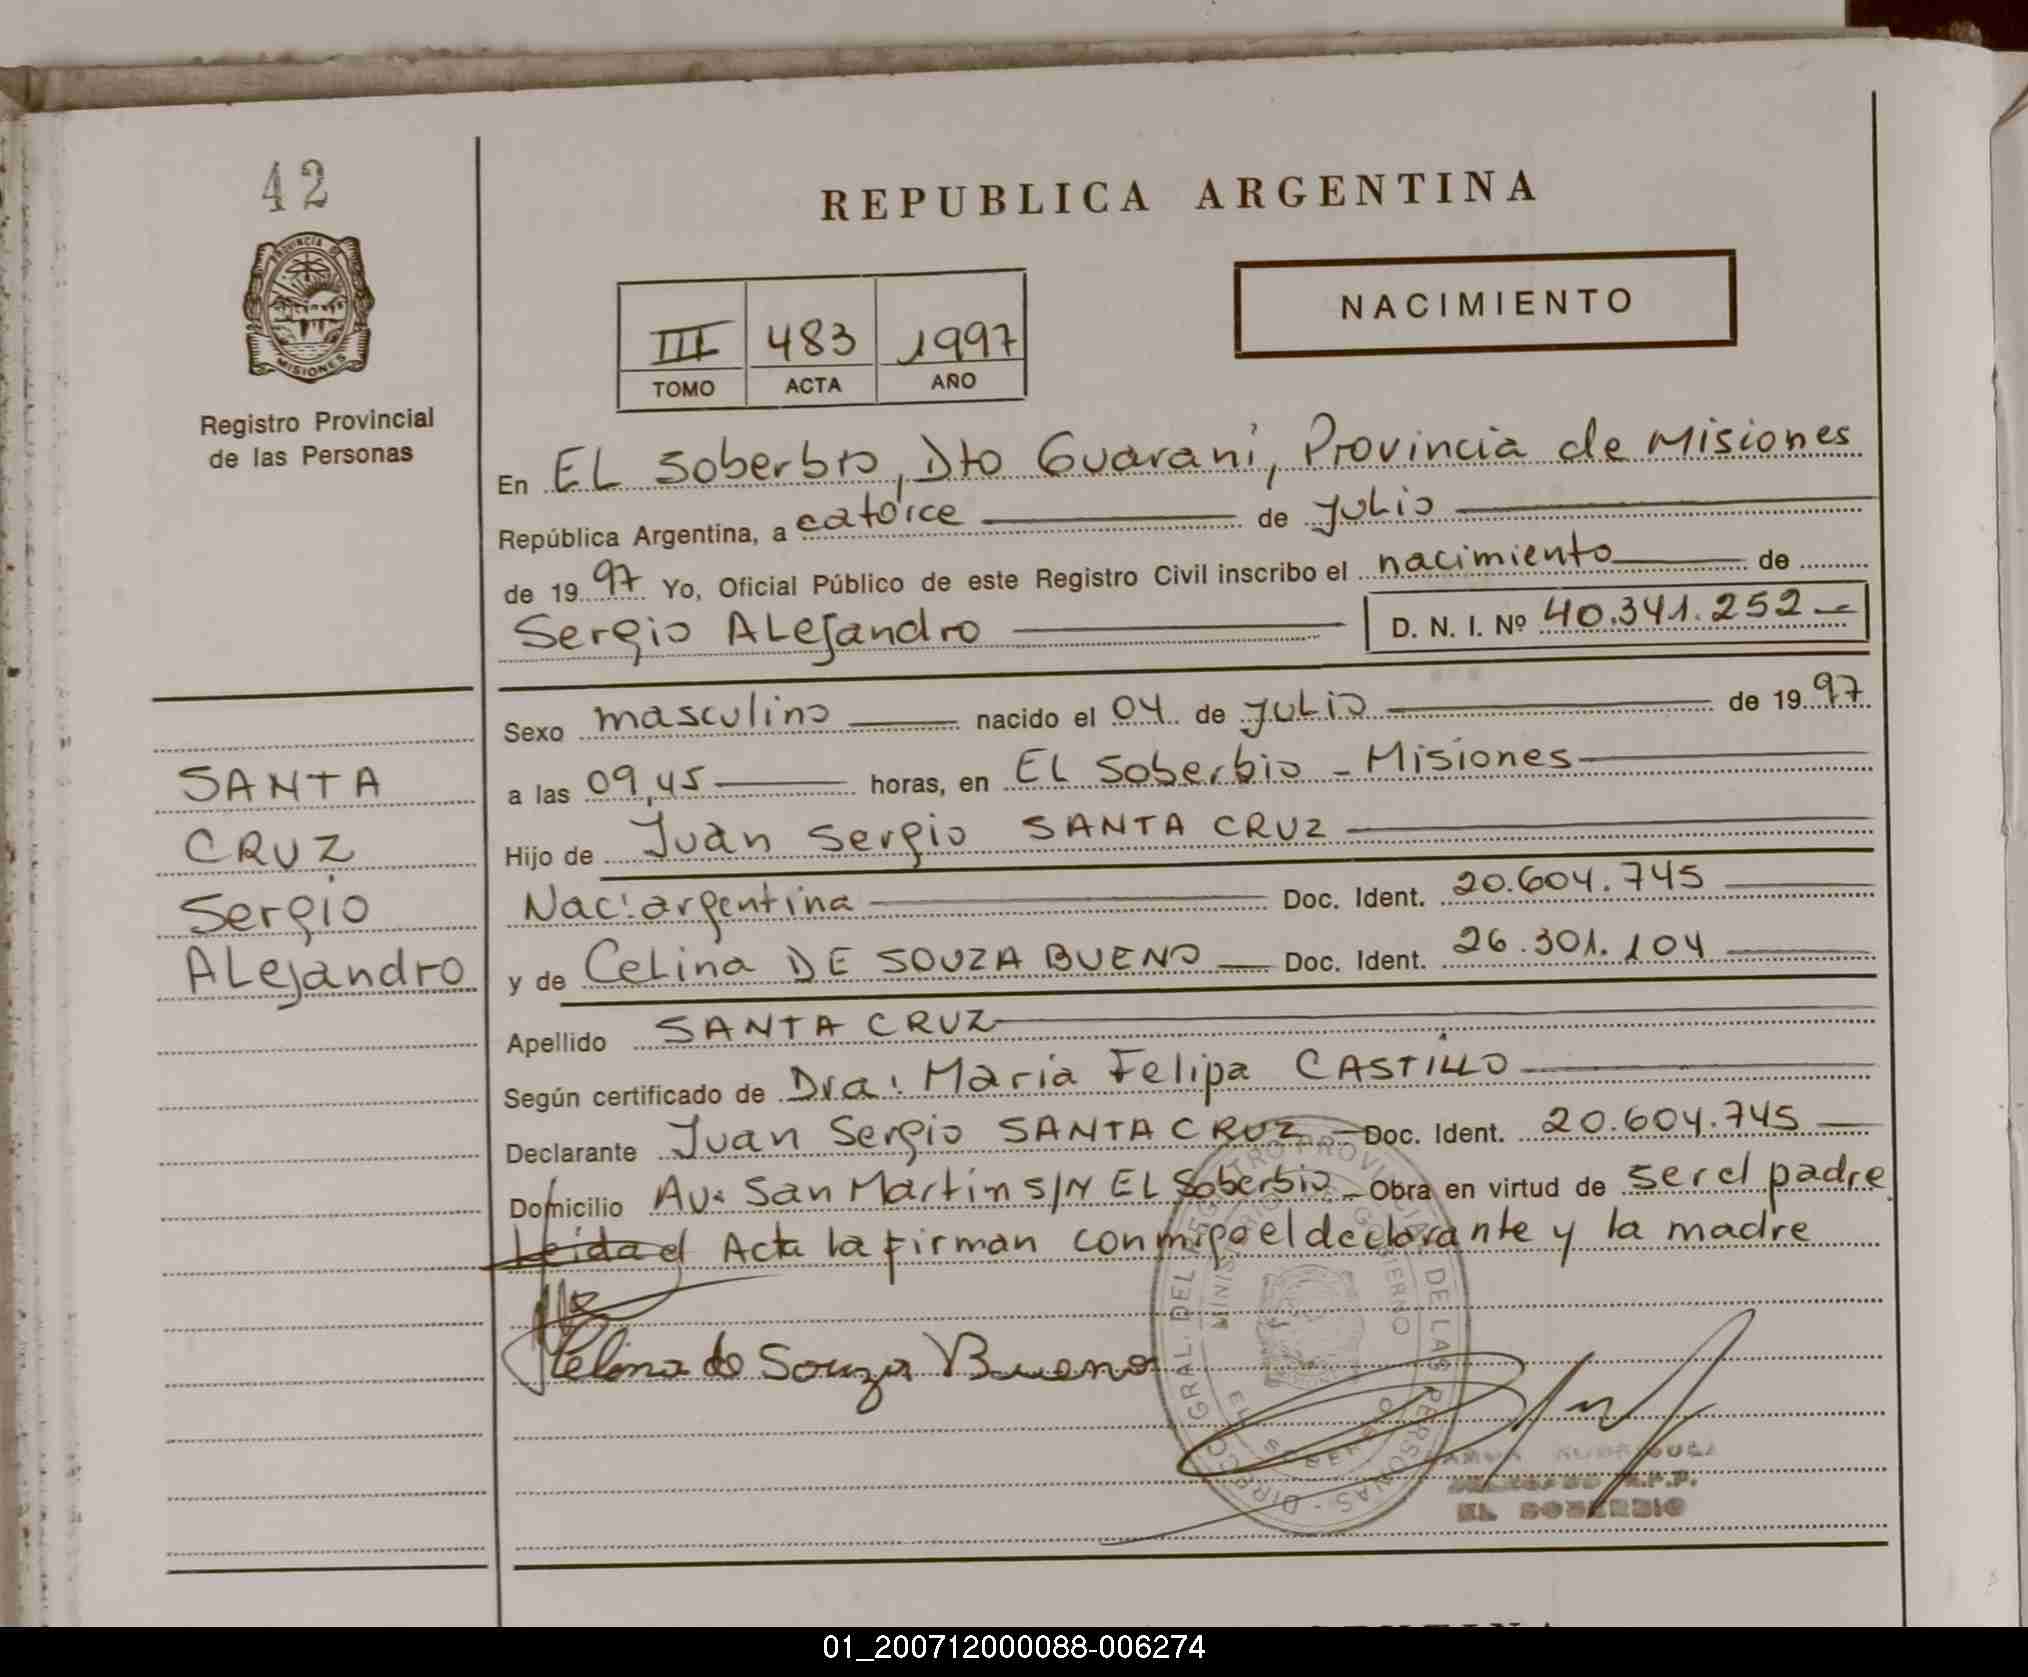 42
PROVINCIA DE
MISIONES
Registro Provincial
de las Personas
REPUBLICA ARGENTINA
NACIMIENTO
III 483 1997
TOMO ACTA AÑO
En EL Soberbio, Dto Guaraní, Provincia de Misiones
República Argentina, a catorce de Julio
de 19 97 Yo, Oficial Público de este Registro Civil inscribo el nacimiento de
Sergio Alejandro D. N. I. Nº 40.341.252
SANTA
CRUZ
Sergio
Alejandro
Sexo masculino nacido el 04 de Julio de 19 97
a las 09,45 horas, en EL Soberbio - Misiones
Hijo de Juan Sergio SANTA CRUZ
Nac: argentina Doc. Ident. 20.604.745
y de Celina DE SOUZA BUENO Doc. Ident. 26.301.104
Apellido SANTA CRUZ
Según certificado de Dra: Maria Felipa CASTILLO
Declarante Juan Sergio SANTA CRUZ Doc. Ident. 20.604.745
Domicilio Av. San Martin S/N EL Soberbio Obra en virtud de ser el padre
Leida el Acta la firman conmigo el declarante y la madre
Celina de Souza Bueno
DIRECC. GRAL. DEL REGISTRO PROVINCIAL DE LAS PERSONAS
MINISTERIO GOBIERNO
EL SOBERBIO
EL SOBERBIO
01_200712000088-006274